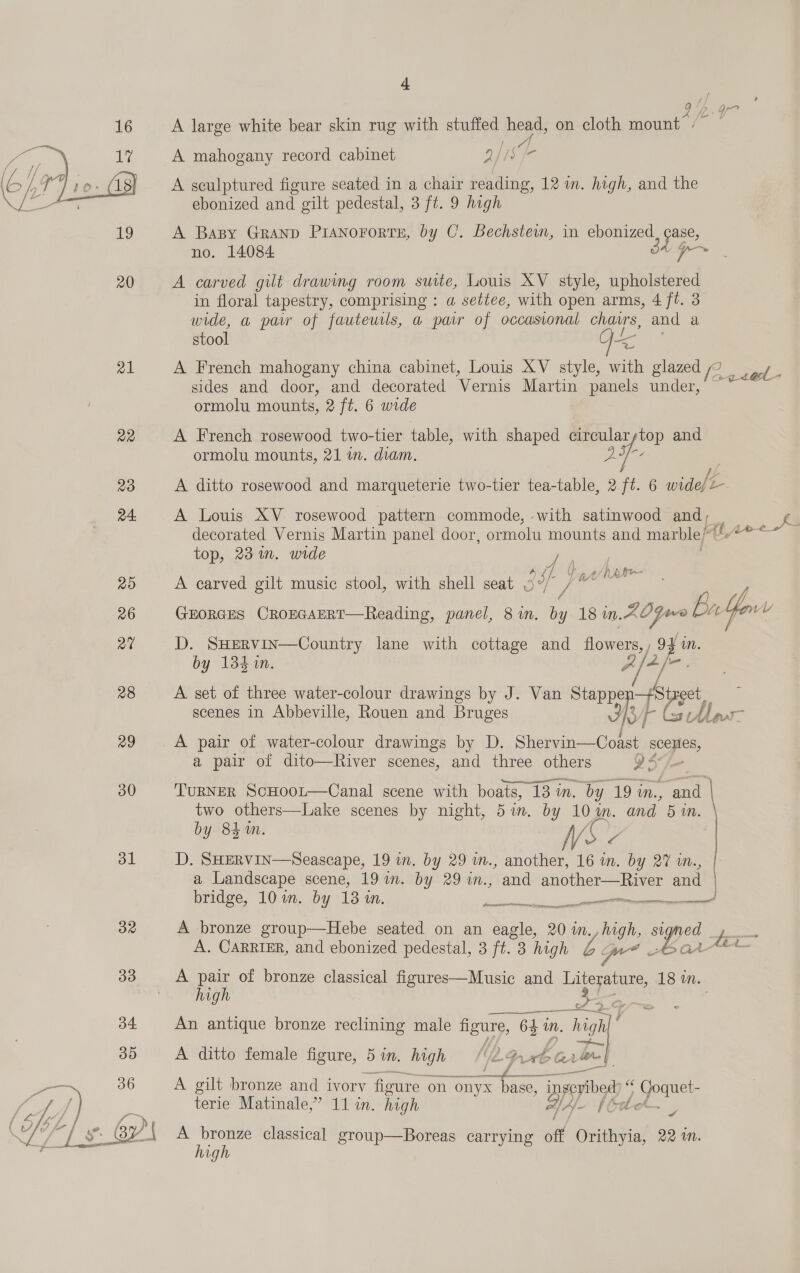 4
16 A large white bear skin rug with stuffed head, on cloth mount
17 A mahogany record cabinet 2/15/-
18 A sculptured figure seated in a chair reading, 12 in. high, and the
ebonized and gilt pedestal, 3 ft. 9 high
19 A BABY GRAND PIANOFORTE, by C. Bechstein, in ebonized case,
no. 14084
20 A carved gilt drawing room suite, Louis XV style, upholstered
in floral tapestry, comprising : a settee, with open arms, 4 ft. 3
wide, a pair of fauteuils, a pair of occasional chairs, and a
stool
21 A French mahogany china cabinet, Louis XV style, with glazed
sides and door, and decorated Vernis Martin panels under,
ormolu mounts, 2 ft. 6 wide
22 A French rosewood two-tier table, with shaped circular top and
ormolu mounts, 21 in. diam.
23 A ditto rosewood and marqueterie two-tier tea-table, 2 ft. 6 wide
24 A Louis XV rosewood pattern commode, with satinwood and
decorated Vernis Martin panel door, ormolu mounts and marble
top, 23 in. wide
25 A carved gilt music stool, with shell seat
26 GEORGES CROEGAERT—Reading, panel, 8 in. by 18 in.
27 D. SHERVIN—Country lane with cottage and flowers, 9½ in.
by 13½ in. 2/2/-
28 A set of three water-colour drawings by J. Van Stappen—Street
scenes in Abbeville, Rouen and Bruges
29 A pair of water-colour drawings by D. Shervin—Coast scenes,
a pair of dito—River scenes, and three others
30 TURNER SCHOOL—Canal scene with boats, 13 in. by 19 in., and
two others—Lake scenes by night, 5 in. by 10 in. and 5 in.
by 8½ in.
31 D. SHERVIN—Seascape, 19 in. by 29 in., another, 16 in. by 27 in.,
a Landscape scene, 19 in. by 29 in., and another—River and
bridge, 10 in. by 13 in.
32 A bronze group—Hebe seated on an eagle, 20 in. high, signed
A. CARRIER, and ebonized pedestal, 3 ft. 3 high
33 A pair of bronze classical figures—Music and Literature, 18 in.
high
34 An antique bronze reclining male figure, 6½ in. high
35 A ditto female figure, 5 in. high
36 A gilt bronze and ivory figure on onyx base, inscribed “ Coquet-
terie Matinale,” 11 in. high
37 A bronze classical group—Boreas carrying off Orithyia, 22 in.
high